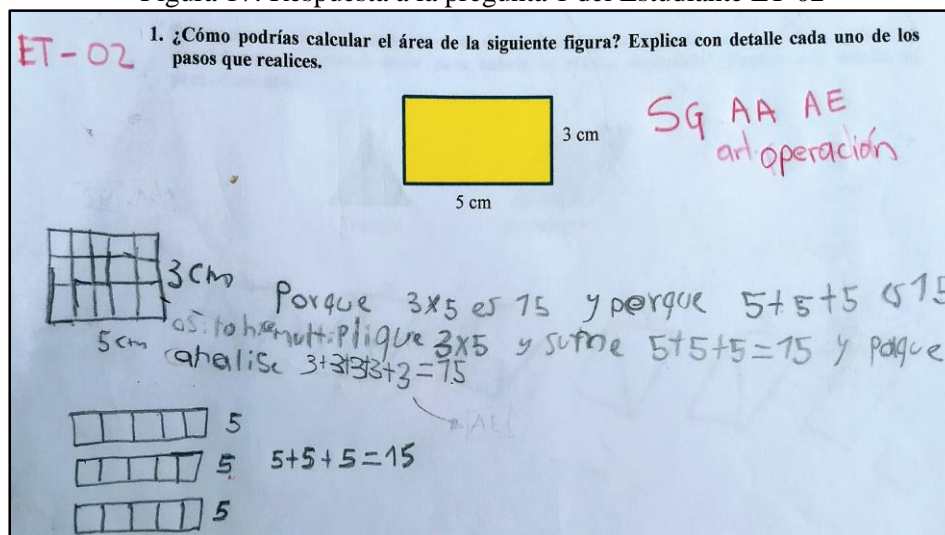 Figura 17. Respuesta a la pregunta 1 del Estudiante ET-02
ET-02
1. ¿Cómo podrías calcular el área de la siguiente figura? Explica con detalle cada uno de los
pasos que realices.
3 cm
5 cm
SG AA AE
operación
3 cm
5 cm
Porque 3x5 es 15 y porque 5+5+5 es 15
multiplique 3x5 y sume 5+5+5=15 y porque
analise 3+3+3+3+3=15
5
5
5
5+5+5=15